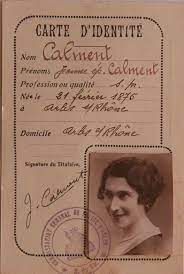 CARTE D'IDENTITÉ
Nom Calment
Prénoms Jeanne ép. Calment
Profession ou qualité s.p.
Né le février
à Arles s/Rhône
Domicile Arles s/Rhône
Signature du Titulaire,
J. Calment
CENTRAL DE